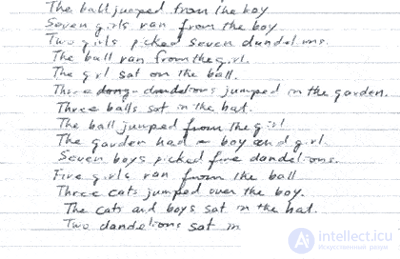 The ball jumped from the boy
Seven girls ran from the boy
Two girls picked seven dandelions.
The ball ran from the girl.
The girl sat on the ball.
Three dandelions jumped in the garden.
Three balls sat in the hat.
The ball jumped from the girl
The garden had a boy and girl.
Seven boys picked five dandelions.
Five girls ran from the ball
Three cats jumped over the boy.
The cats and boys sat in the hat.
Two dandelions sat in
intellect.icu